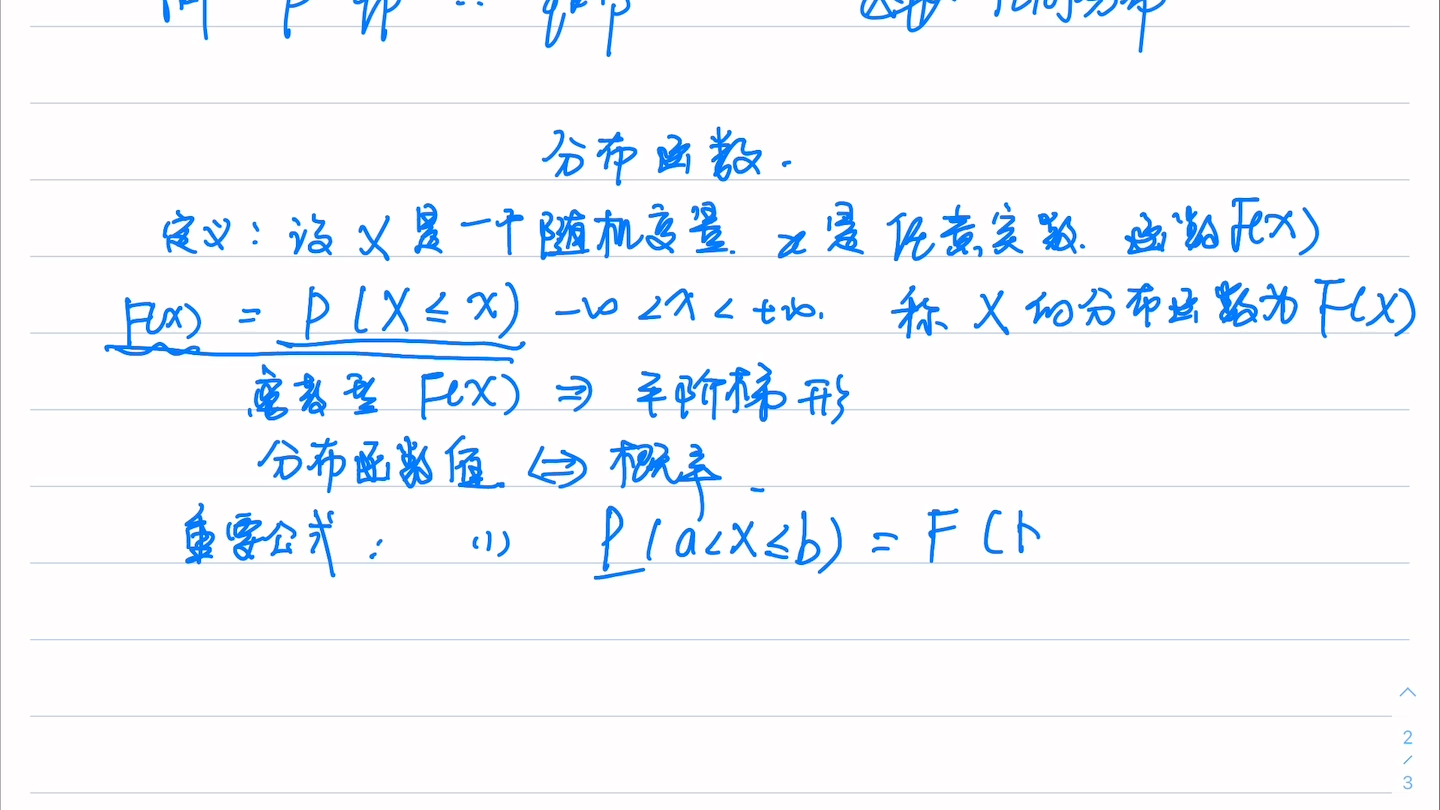 分布函数.
定义：设 X 是一个随机变量. x 是任意实数. 函数F(x)
F(x) = P(X ≤ x) -∞ < x < +∞. 称 X 的分布函数为 F(X)
离散型 F(X) ⇒ 阶梯形
分布函数值 ⇔ 概率
重要公式： (1) P(a<X≤b) = F(
2
/
3